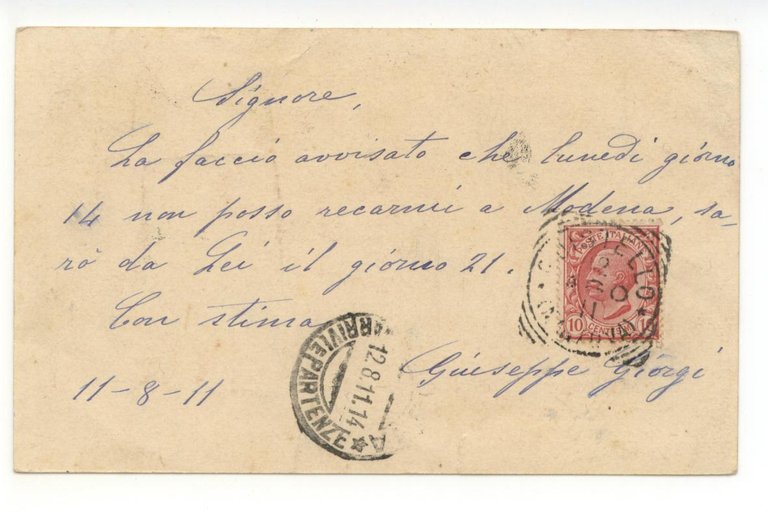 Signore,
La faccio avvisato che lunedì giorno
14 non posso recarmi a Modena, sa-
rò da Lei il giorno 21.
Con stima
Giuseppe Giorgi
11-8-11
POSTE ITALIANE
10 CENTESIMI 10
ARRIVI E PARTENZE
12.8.11.14